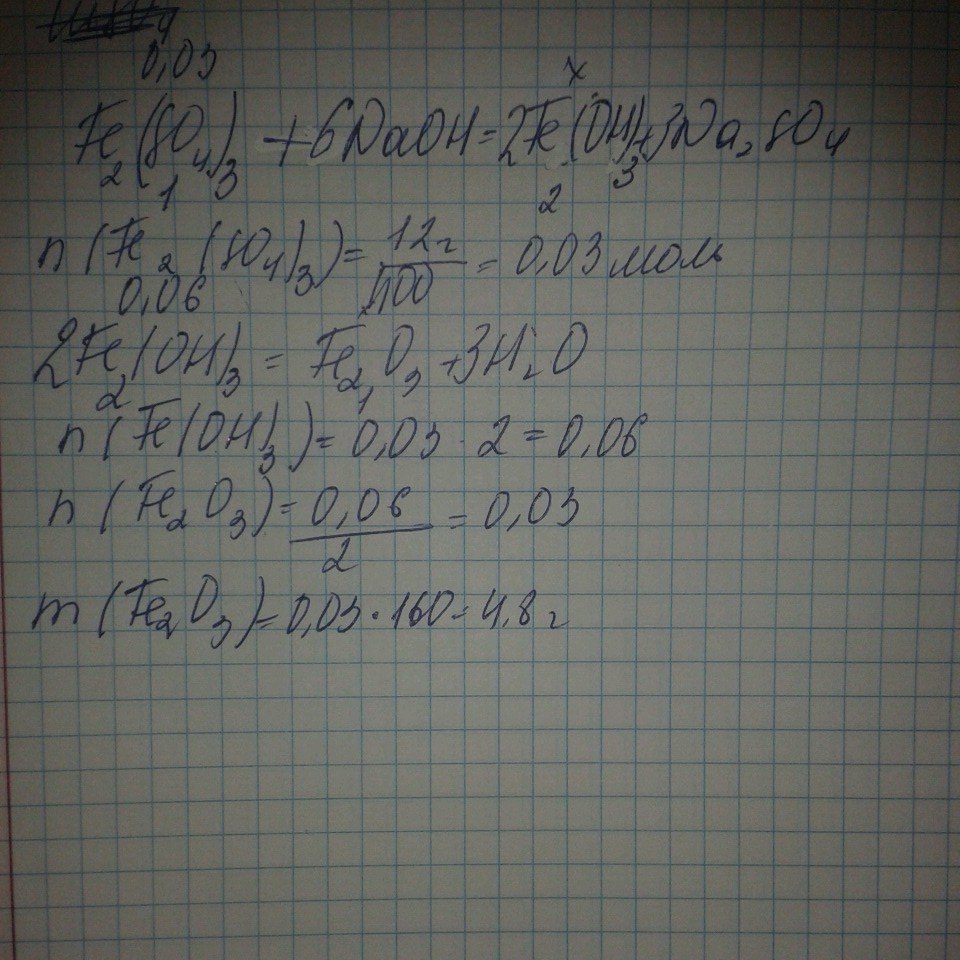 0,03 x
Fe2(SO4)3 + 6NaOH = 2Fe(OH)3 + 3Na2SO4
1 2
n (Fe2(SO4)3) = 12г/400 = 0,03 моль
0,06
2Fe(OH)3 = Fe2O3 + 3H2O
2 1
n (Fe(OH)3) = 0,03 · 2 = 0,06
n (Fe2O3) = 0,06/2 = 0,03
m (Fe2O3) = 0,03 · 160 = 4,8 г